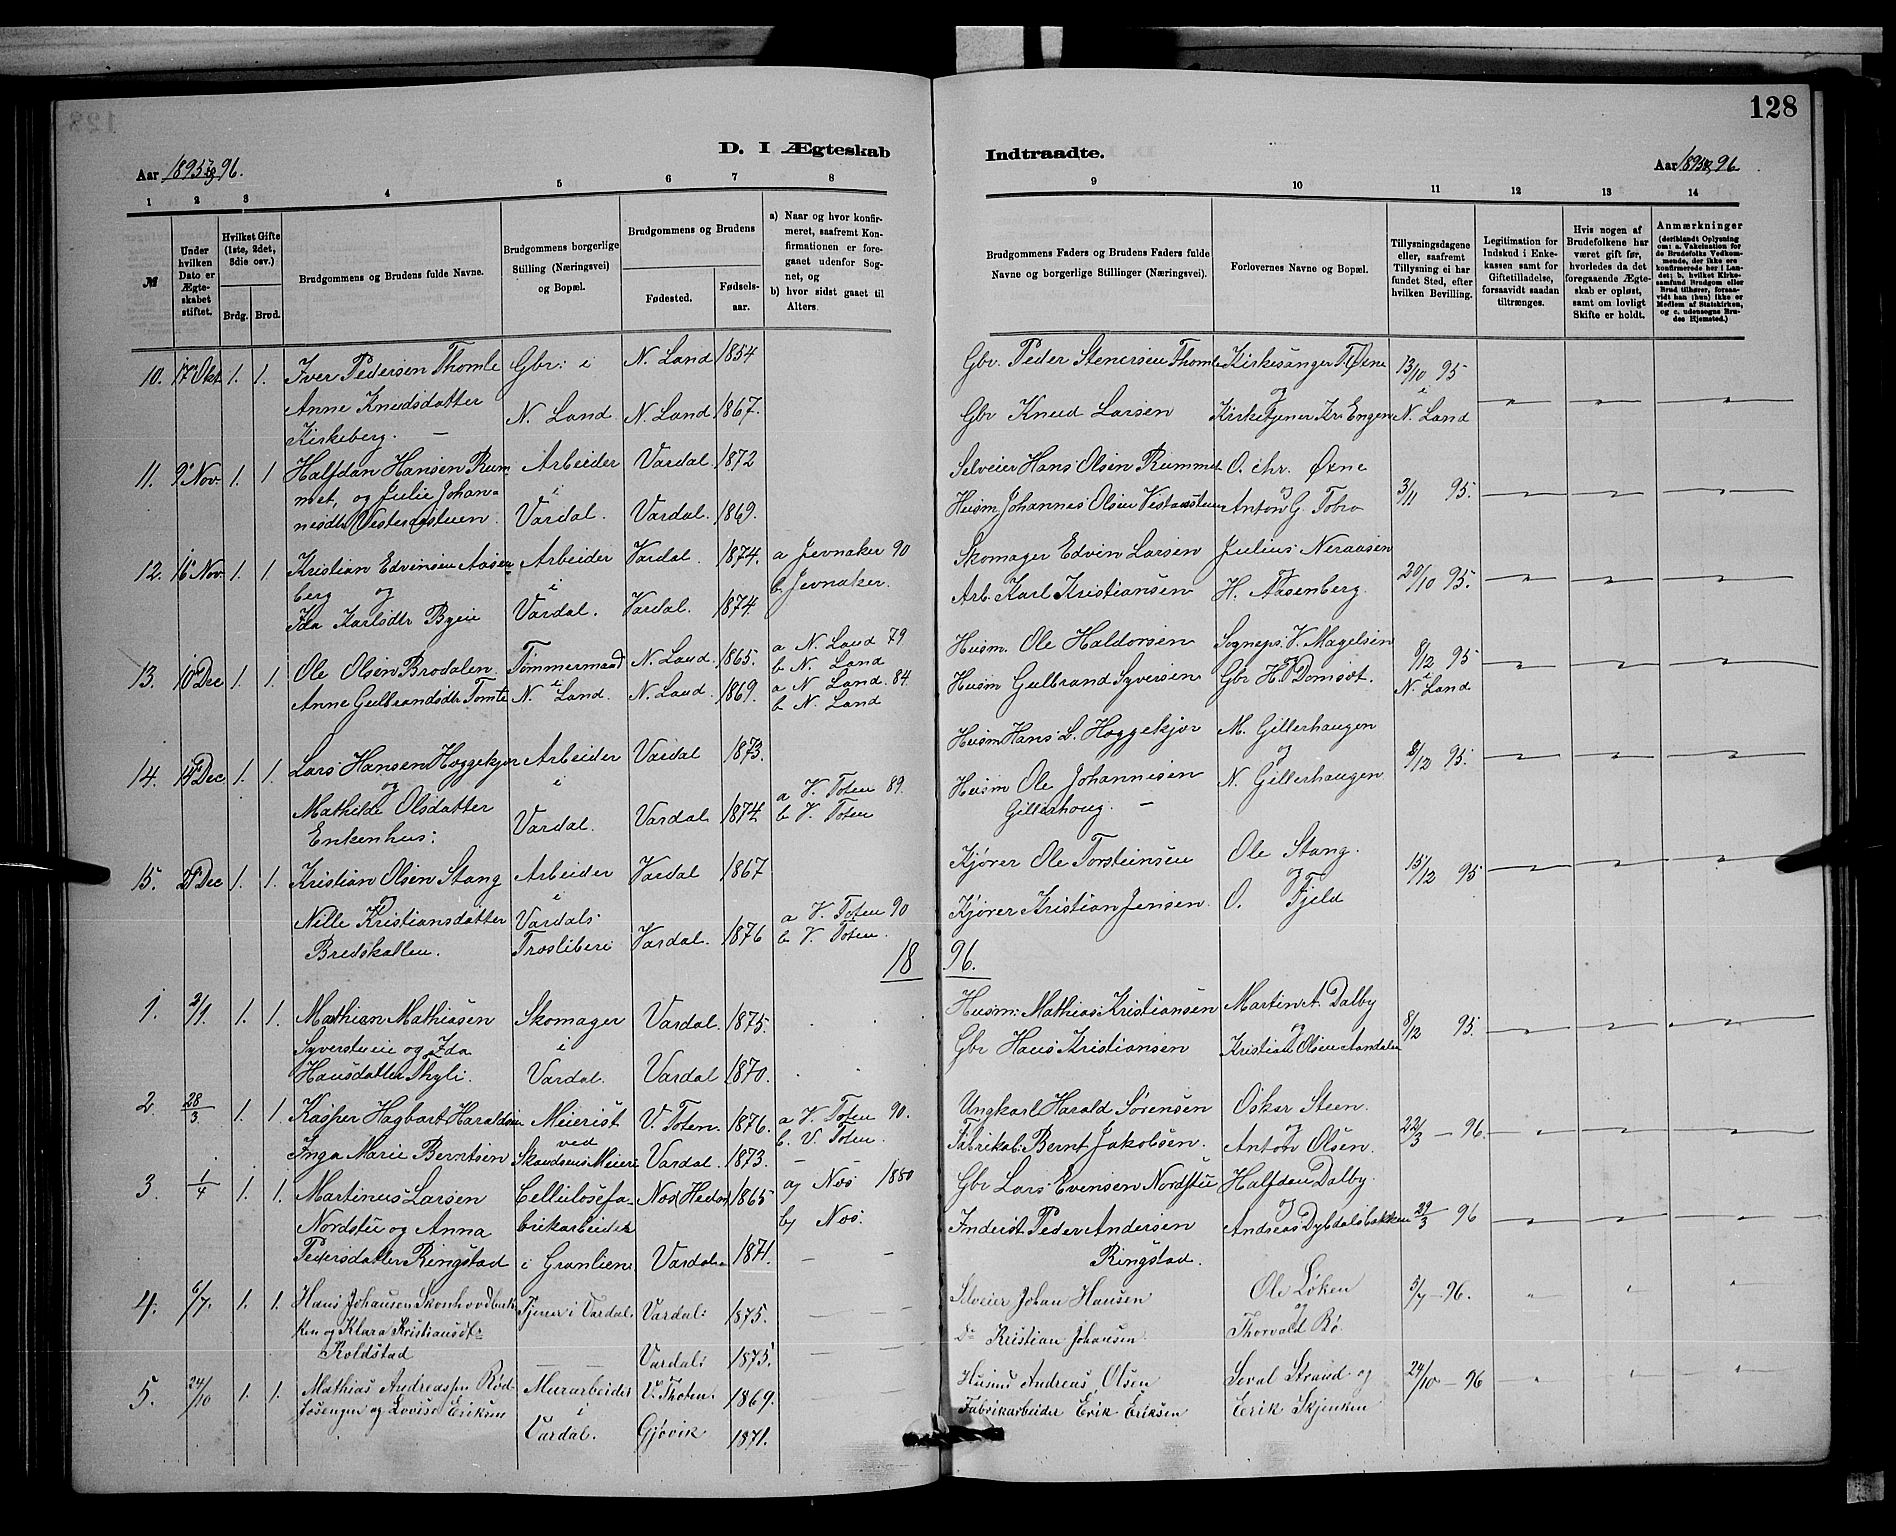 128
D. I Ægteskab
Indtraadte.
Aar 1895 & 96.
Aar 1895 & 96
1 2 3 4 5 6 7 8
9 10 11 12 13 14
№
Under hvilken Dato er Ægteskabet stiftet.
Hvilket Gifte (1ste, 2det, 3die osv.)
Brdg. Brud.
Brudgommens og Brudens fulde Navne.
Brudgommens borgerlige Stilling (Næringsvei) og Bopæl.
Brudgommens og Brudens
Fødested.
Fødselsaar.
a) Naar og hvor konfirmeret, saafremt Konfirmationen er foregaaet udenfor Sognet, og
b) hvor sidst gaaet til Alters.
Brudgommens Faders og Brudens Faders fulde Navne og borgerlige Stillinger (Næringsvei).
Forlovernes Navne og Bopæl.
Tillysningsdagene eller, saafremt Tillysning ei har fundet Sted, efter hvilken Bevilling.
Legitimation for Indskud i Enkekassen samt for Giftetilladelse, forsaavidt saadan tiltrænges.
Hvis nogen af Brudefolkene har været gift før, hvorledes da det foregaaende Ægteskab er opløst, samt om lovligt Skifte er holdt.
Anmærkninger (deriblandt Oplysning om: a. Vakcination for de Brudefolks Vedkommende, der ikke ere konfirmerede her i Landet; b. hvilket Kirkesamfund Brudgom eller Brud tilhører, forsaavidt han (hun) ikke er Medlem af Statskirken, og c. udensogns Brudes Hjemsted.)
10. 17 Okt 1. 1. Iver Pedersen Thomle Gbr: i N. Land 1854 Gbr. Peder Stenersen Thomle Kirkesanger T Øxne 13/10 95
Anne Knudsdatter N. Land N. Land 1867. Gbr Knud Larsen og Kirketjener Kr. Engen i N. Land
Kirkeberg. —
11. 9 Nov 1. 1 Halfdan Hansen Rum- Arbeider Vardal. 1872 Selveier Hans Olsen Rummet O. Chr. Øxne
met, og Julie Johan- i Vardal. Vardal. 1869. Husm Johannes Olsen og Anton G. Tobro 3/11 95.
nesdtr
12. 15 Nov. 1. 1. Kristian Edvinsen Aasen- Arbeider Vardal. 1874. a Jevnaker 90 Skomager Edvin Larsen Julius Neraasen
berg og i b Jevnaker. Arb. Karl Kristiansen og H. Aasenberg. 20/10 95.
Ida Karlsdtr Byeie Vardal. Vardal. 1874.
13. 10 Dec 1. 1. Ole Olsen Brodalen Tømmermand N. Land. 1865. a N. Land 79 b N. Land Husm. Ole Haldorsen Sognepr. V. Magelsen 8/12 95
Anne Gulbrandsdtr Tomte i N. Land. N. Land. 1869. a N. Land. 84. b N. Land Husm Gulbrand Syversen Gbr H. Domsöt. i N. Land
14. 14 Dec 1. 1. Lars Hansen Hoggekjør Arbeider Vardal 1873. Husm Hans L. Hoggekjør M. Gillerhaugen
og i og 8/12 95.
Mathilde Olsdatter Vardal. Vardal 1874. a V. Toten 89. b V. Toten Husm Ole Johannesen N. Gillerhaugen
Enkenhus. Gillerhoug. —
15. 27 Dec 1. 1. Kristian Olsen Stang Arbeider Vardal 1867 Kjører Ole Torsteinsen Ole Stang. 15/12 95
Nille Kristiansdatter i Vardals Vardal. 1876 a V. Toten 90 b V. Toten. Kjører Kristian Jensen. og O. Fjeld
Bredskallen. Træsliberi
1896.
1. 2/1. 1. 1. Mathian Mathiasen Skomager Vardal. 1875. Husm: Mathias Kristiansen Martin A. Dalby
Syverstuie og Ida i og 8/12 95.
Hansdatter Thyli. Vardal. Vardal 1870. Gbr Hans Kristiansen Kristian Olsen
2. 28/3 1. 1. Kasper Hagbart Haraldsen Meierist V. Toten. 1876. a V. Toten 90. b. V. Toten. Ungkarl Harald Sørensen Oskar Steen.
Inga Marie Berntsen ved Meieri Vardal. 1873. — Fabrikab. Bernt Jakobsen. og Anton Olsen. 22/3 — 96.
3. 1/4 1. 1. Martinus Larsen Cellulosefa- Næs (Hedm) 1865 a) Næs 1880 Gbr Lars Evensen Nordstu Halfdan Dalby.
Nordstu og Anna brikarbeider b) Næs. Inderst Peder Andersen og Andreas Dybdalsbakken 29/3 96
Pedersdatter Ringstad i Grønlien Vardal 1871. — — Ringstad.
4. 6/7. 1. 1. Hans Johansen Skonhovdbak- Tjener i Vardal. Vardal: 1875. — — Selveier Johan Hansen Ole Løken 5/7 — 96.
ken og Klara Kristiansdtr og
Roldstad — — Vardal: 1875. — — Do Kristian Johansen Thorvald Bø.
5. 24/10 1. 1. Mathias Andreassen Rød- Murarbeider V. Thoten. 1869. Husmd Andreas Olsen Seval Strand og 24/10 — 96
sengen og Lovise Eriksen i Vardal. Gjøvik 1871. Fabrikarbeider Erik Eriksen Erik Skjenken